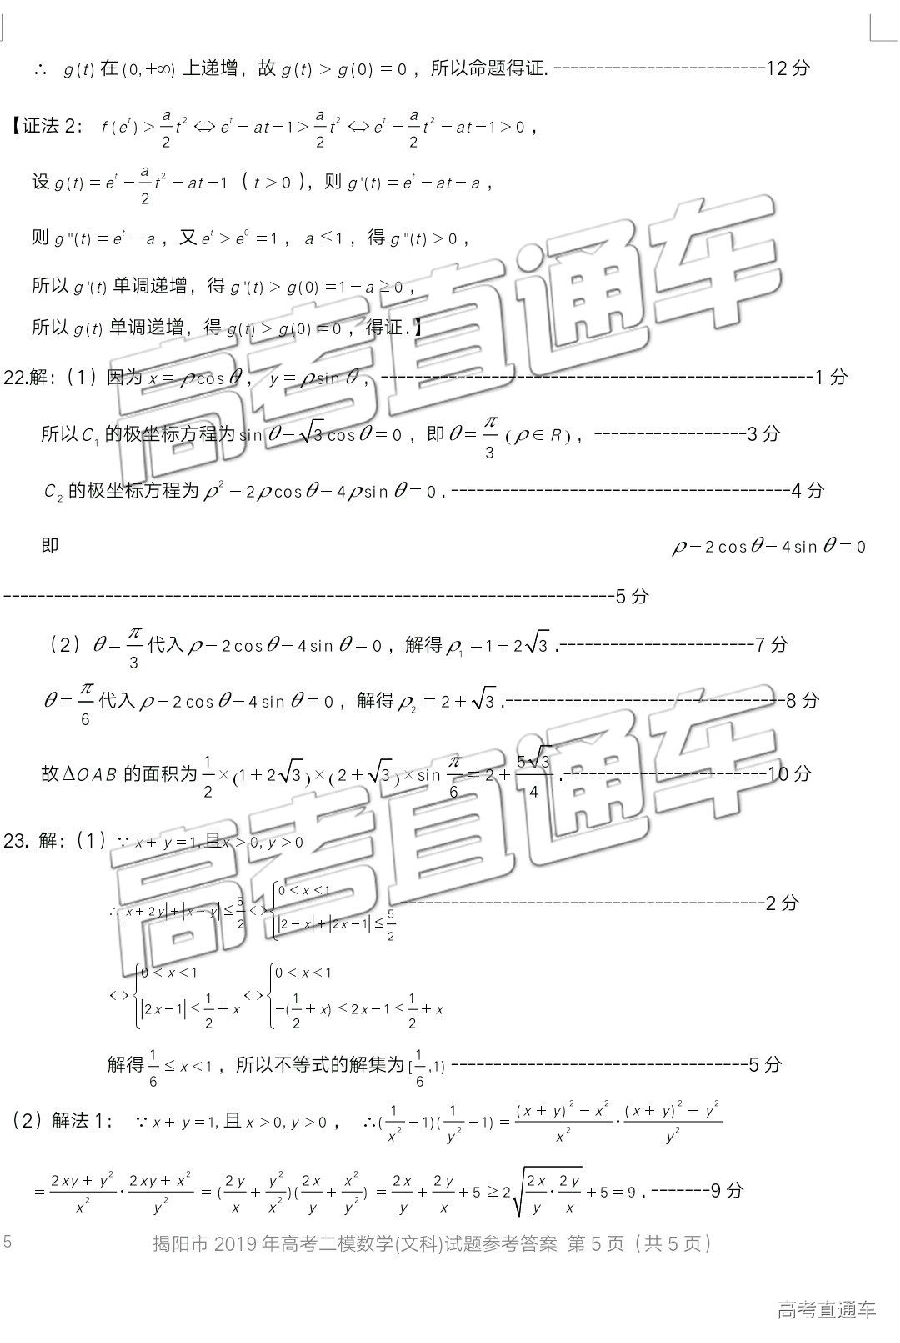 ∴ g(t)在(0,+∞)上递增，故g(t)>g(0)=0，所以命题得证.-------------------------12分
【证法2：f(e^t)>\frac{a}{2}t^2⇔e^t-at-1>\frac{a}{2}t^2⇔e^t-\frac{a}{2}t^2-at-1>0，
设g(t)=e^t-\frac{a}{2}t^2-at-1（t>0），则g'(t)=e^t-at-a，
则g"(t)=e^t-a，又e^t>e^0=1，a≤1，得g"(t)>0，
所以g'(t)单调递增，得g'(t)>g(0)=1-a≥0，
所以g(t)单调递增，得g(t)>g(0)=0，得证.】
22.解：（1）因为x=ρcosθ，y=ρsinθ，--------------------------------------------------1分
所以C_1的极坐标方程为sinθ-√3cosθ=0，即θ=\frac{π}{3}(ρ∈R)，------------------3分
C_2的极坐标方程为ρ^2-2ρcosθ-4ρsinθ=0.----------------------------------------4分
即 ρ-2cosθ-4sinθ=0
------------------------------------------------------------------------5分
（2）θ=\frac{π}{3}代入ρ-2cosθ-4sinθ=0，解得ρ_1=1-2√3.-----------------------7分
θ=\frac{π}{6}代入ρ-2cosθ-4sinθ=0，解得ρ_2=2+√3.---------------------------------8分
故ΔOAB的面积为\frac{1}{2}×(1+2√3)×(2+√3)×sin\frac{π}{6}=2+\frac{5√3}{4}.------------------------10分
23.解：（1）∵x+y=1,且x>0,y>0
∴|x+2y|+|x-y|≤\frac{5}{2}<>{0<x<1 |2-x|+|2x-1|≤\frac{5}{2}-------------------------------------------2分
<>{0<x<1 |2x-1|<\frac{1}{2}-x<>{0<x<1 -(\frac{1}{2}+x)<2x-1<\frac{1}{2}+x
解得\frac{1}{6}≤x<1，所以不等式的解集为[\frac{1}{6},1)-----------------------------------5分
（2）解法1：∵x+y=1,且x>0,y>0，∴(\frac{1}{x^2}-1)(\frac{1}{y^2}-1)=\frac{(x+y)^2-x^2}{x^2}·\frac{(x+y)^2-y^2}{y^2}
=\frac{2xy+y^2}{x^2}·\frac{2xy+x^2}{y^2}=(\frac{2y}{x}+\frac{y^2}{x^2})(\frac{2x}{y}+\frac{x^2}{y^2})=\frac{2x}{y}+\frac{2y}{x}+5≥2√{\frac{2x}{y}·\frac{2y}{x}}+5=9.-------9分
5 揭阳市2019年高考二模数学(文科)试题参考答案 第5页（共5页）
高考直通车
高考直通车
高考直通车